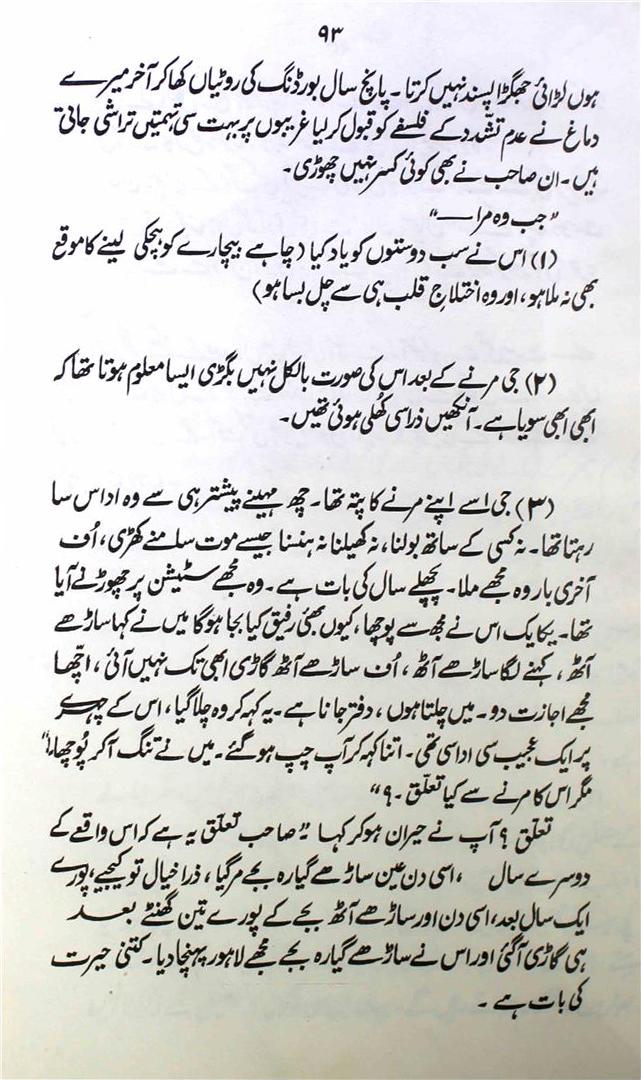 ۹۳
ہوں لڑائی جھگڑا پسند نہیں کرتا۔ پانچ سال بورڈنگ کی روٹیاں کھا کر آخر میرے
دماغ نے عدم تشدد کے فلسفے کو قبول کر لیا غریبوں پر بہت سی تہمتیں تراشی جاتی
ہیں۔ ان صاحب نے بھی کوئی کسر نہیں چھوڑی۔
"جب وہ مرا —"
(۱) اس نے سب دوستوں کو یاد کیا (چاہے بیچارے کو ہچکی لینے کا موقع
بھی نہ ملا ہو، اور وہ اختلاجِ قلب ہی سے چل بسا ہو)
(۲) جی مرنے کے بعد اس کی صورت بالکل نہیں بگڑی ایسا معلوم ہوتا تھا کہ
ابھی ابھی سویا ہے۔ آنکھیں ذرا سی کھلی ہوئی تھیں۔
(۳) جی اسے اپنے مرنے کا پتہ تھا۔ چھ مہینے پیشتر ہی سے وہ اداس سا
رہتا تھا۔ نہ کسی کے ساتھ بولنا، نہ کھیلنا نہ ہنسنا جیسے موت سامنے کھڑی، اُف
آخری بار وہ مجھے ملا۔ پچھلے سال کی بات ہے۔ وہ مجھے سٹیشن پر چھوڑنے آیا
تھا۔ یکایک اس نے مجھ سے پوچھا، کیوں بھئی رفیق کیا بجا ہوگا میں نے کہا ساڑھے
آٹھ، کہنے لگا ساڑھے آٹھ، اُف ساڑھے آٹھ گاڑی ابھی تک نہیں آئی، اچھا
مجھے اجازت دو۔ میں چلتا ہوں، دفتر جانا ہے۔ یہ کہہ کر وہ چلا گیا، اس کے چہرے
پر ایک عجیب سی اداسی تھی۔ اتنا کہہ کر آپ چپ ہو گئے۔ میں نے تنگ آ کر پُوچھا،"
مگر اس کا مرنے سے کیا تعلّق۔؟"
تعلّق؟ آپ نے حیران ہو کر کہا "صاحب تعلّق یہ ہے کہ اس واقعے کے
دوسرے سال ، اسی دن عین ساڑھے گیارہ بجے مر گیا، ذرا خیال تو کیجیے، پورے
ایک سال بعد، اسی دن اور ساڑھے آٹھ بجے کے پورے تین گھنٹے بعد
ہی گاڑی آگئی اور اس نے ساڑھے گیارہ بجے مجھے لاہور پہنچا دیا۔ کتنی حیرت
کی بات ہے۔